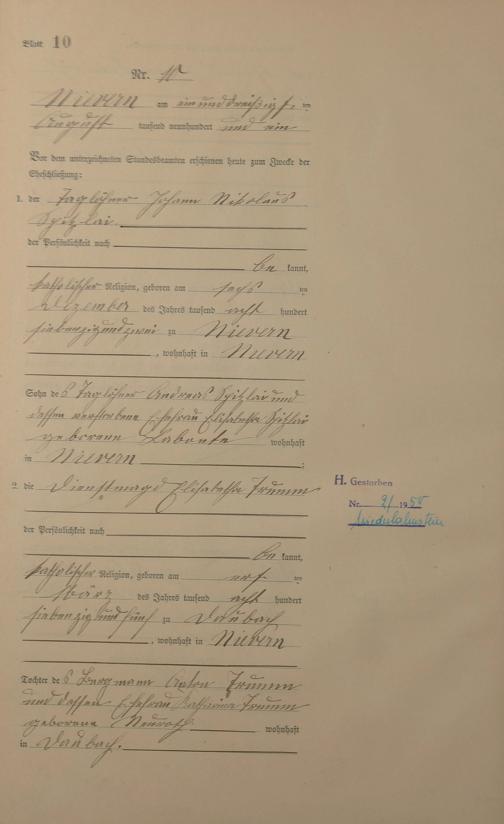 Blatt 10
Nr. 10
Nievern am einunddreißigsten
August tausend neunhundert und ein
Vor dem unterzeichneten Standesbeamten erschienen heute zum Zwecke der
Eheschließung:
1. der Taglöhner Johann Nikolaus
Spitzlai
der Persönlichkeit nach
be kannt,
katholischer Religion, geboren am sechs ten
Dezember des Jahres tausend acht hundert
siebenzigundzwei zu Nievern
, wohnhaft in Nievern
Sohn des Taglöhner Andreas Spitzlai und
dessen verstorbene Ehefrau Elisabetha Spitzlai
geborene Labonte wohnhaft
in Nievern
2. die Dienstmagd Elisabetha Trumm
der Persönlichkeit nach
be kannt,
katholischer Religion, geboren am ten
März des Jahres tausend acht hundert
siebenzig und fünf zu Daubach
, wohnhaft in Nievern
Tochter des Bergmann Anton Trumm
und dessen Ehefrau Katharina Trumm
geborene wohnhaft
in Daubach.
H. Gestorben
Nr. 2/1958
Niederlahnstein